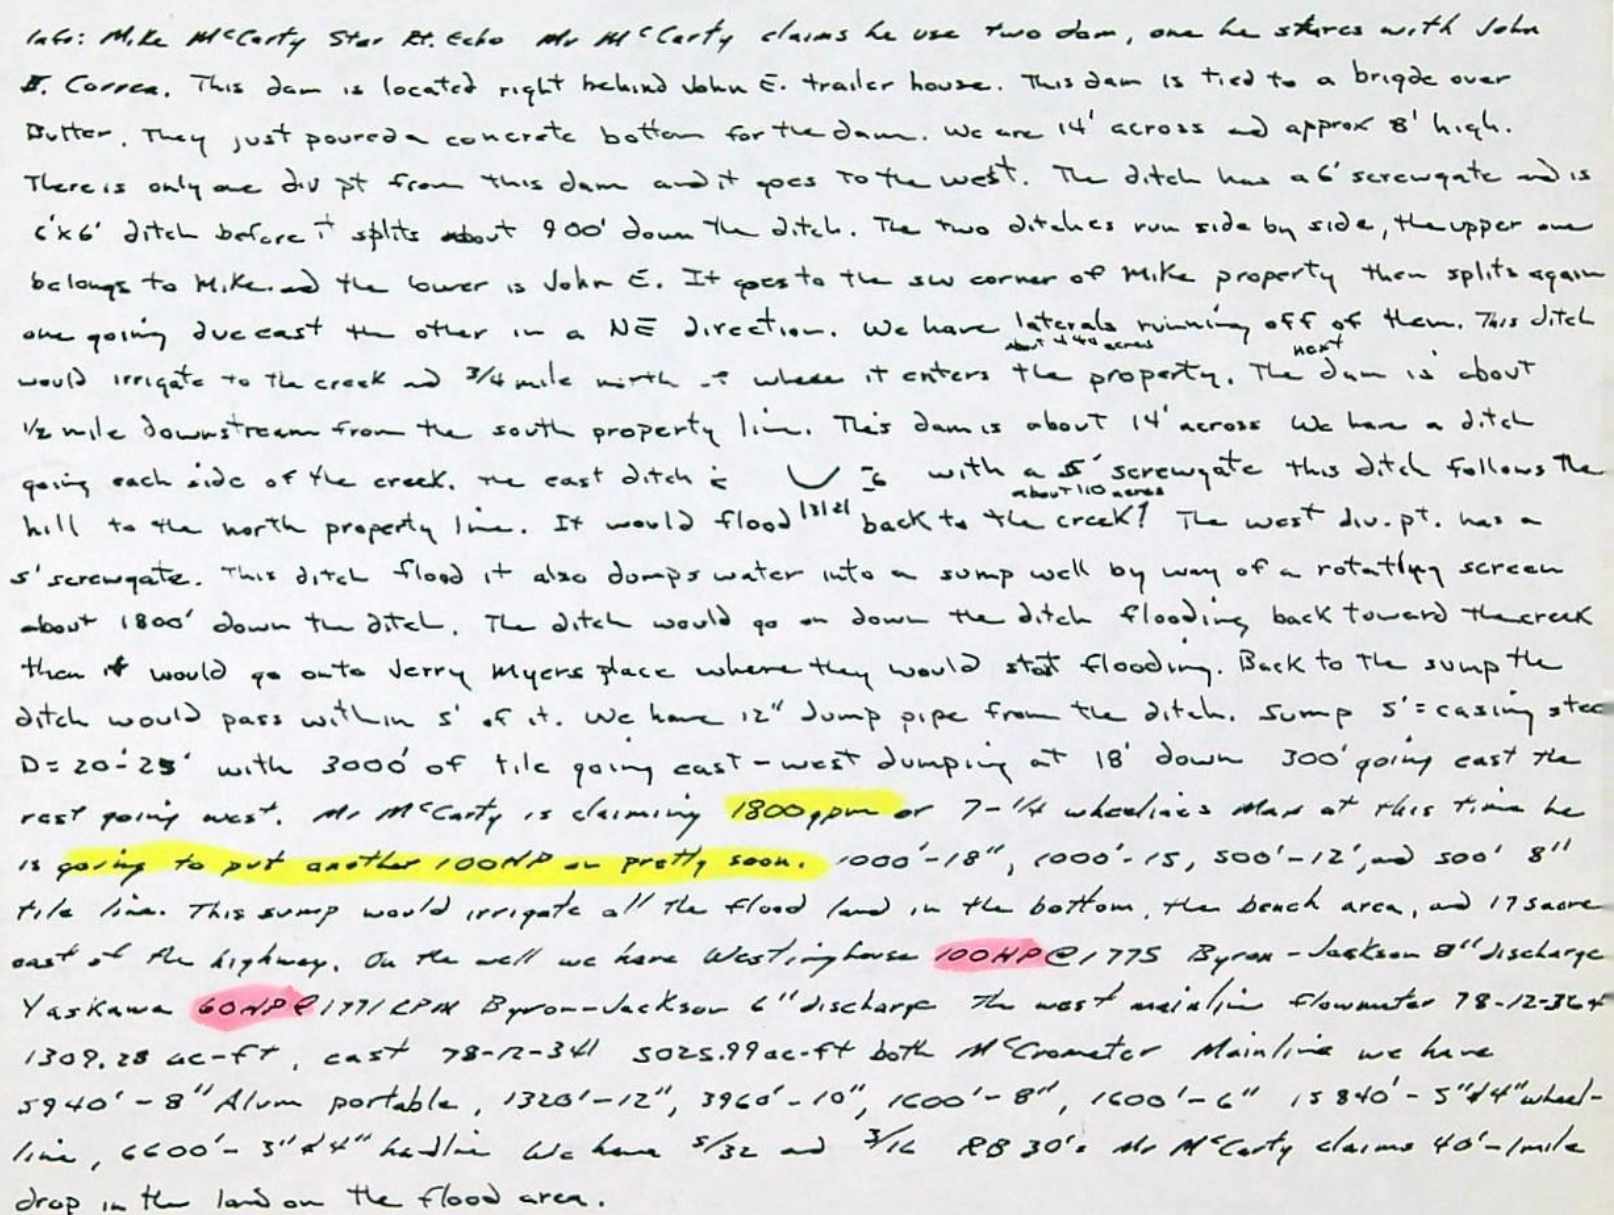 Info: Mike McCarty Star Rt. Echo Mr McCarty claims he use two dam, one he shares with John
E. Correa. This dam is located right behind John E. trailer house. This dam is tied to a brigde over
Butter. They just poured a concrete bottom for the dam. We are 14' across and approx 8' high.
There is only one div pt from this dam and it goes to the west. The ditch has a 6' screwgate and is
6'x6' ditch before it splits about 900' down the ditch. The two ditches run side by side, the upper one
belongs to Mike and the lower is John E. It goes to the SW corner of Mike property then splits again
one going due east the other in a NE direction. We have laterals running off of them. This ditch
about 440 acres next
would irrigate to the creek and 3/4 mile north of where it enters the property. The dam is about
1/2 mile downstream from the south property line. This dam is about 14' across We have a ditch
going each side of the creek. The east ditch is 6 with a 5' screwgate this ditch follows the
about 110 acres
hill to the north property line. It would flood 13121 back to the creek! The west div. pt. has a
5' screwgate. This ditch flood it also dumps water into a sump well by way of a rotating screen
about 1800' down the ditch. The ditch would go on down the ditch flooding back toward the creek
then it would go onto Jerry Myers place where they would stat flooding. Back to the sump the
ditch would pass within 5' of it. We have 12" dump pipe from the ditch. Sump 5'= casing stee
D= 20'-25' with 3000' of tile going east-west dumping at 18' down 300' going east the
rest going west. Mr McCarty is claiming 1800gpm or 7-1/4 wheelines Max at this time he
is going to put another 100HP on pretty soon. 1000'-18", 1000'-15, 500'-12', and 500' 8"
tile line. This sump would irrigate all the flood land in the bottom, the bench area, and 175acre
east of the highway. On the well we have Westinghouse 100HP@1775 Byron-Jackson 8" discharge
Yaskawa 60HP@1771 RPM Byron-Jackson 6" discharge The west mainline flowmeter 78-12-364
1309.28 ac-ft, east 78-12-341 5025.99 ac-ft both McCrometer Mainline we have
5940'-8" Alum portable, 1320'-12", 3960'-10", 1600'-8", 1600'-6" 15840'-5"&4" wheel-
line, 6600'-3"&4" handline We have 5/32 and 3/16 RB 30's Mr McCarty claims 40'-1mile
drop in the land on the flood area.